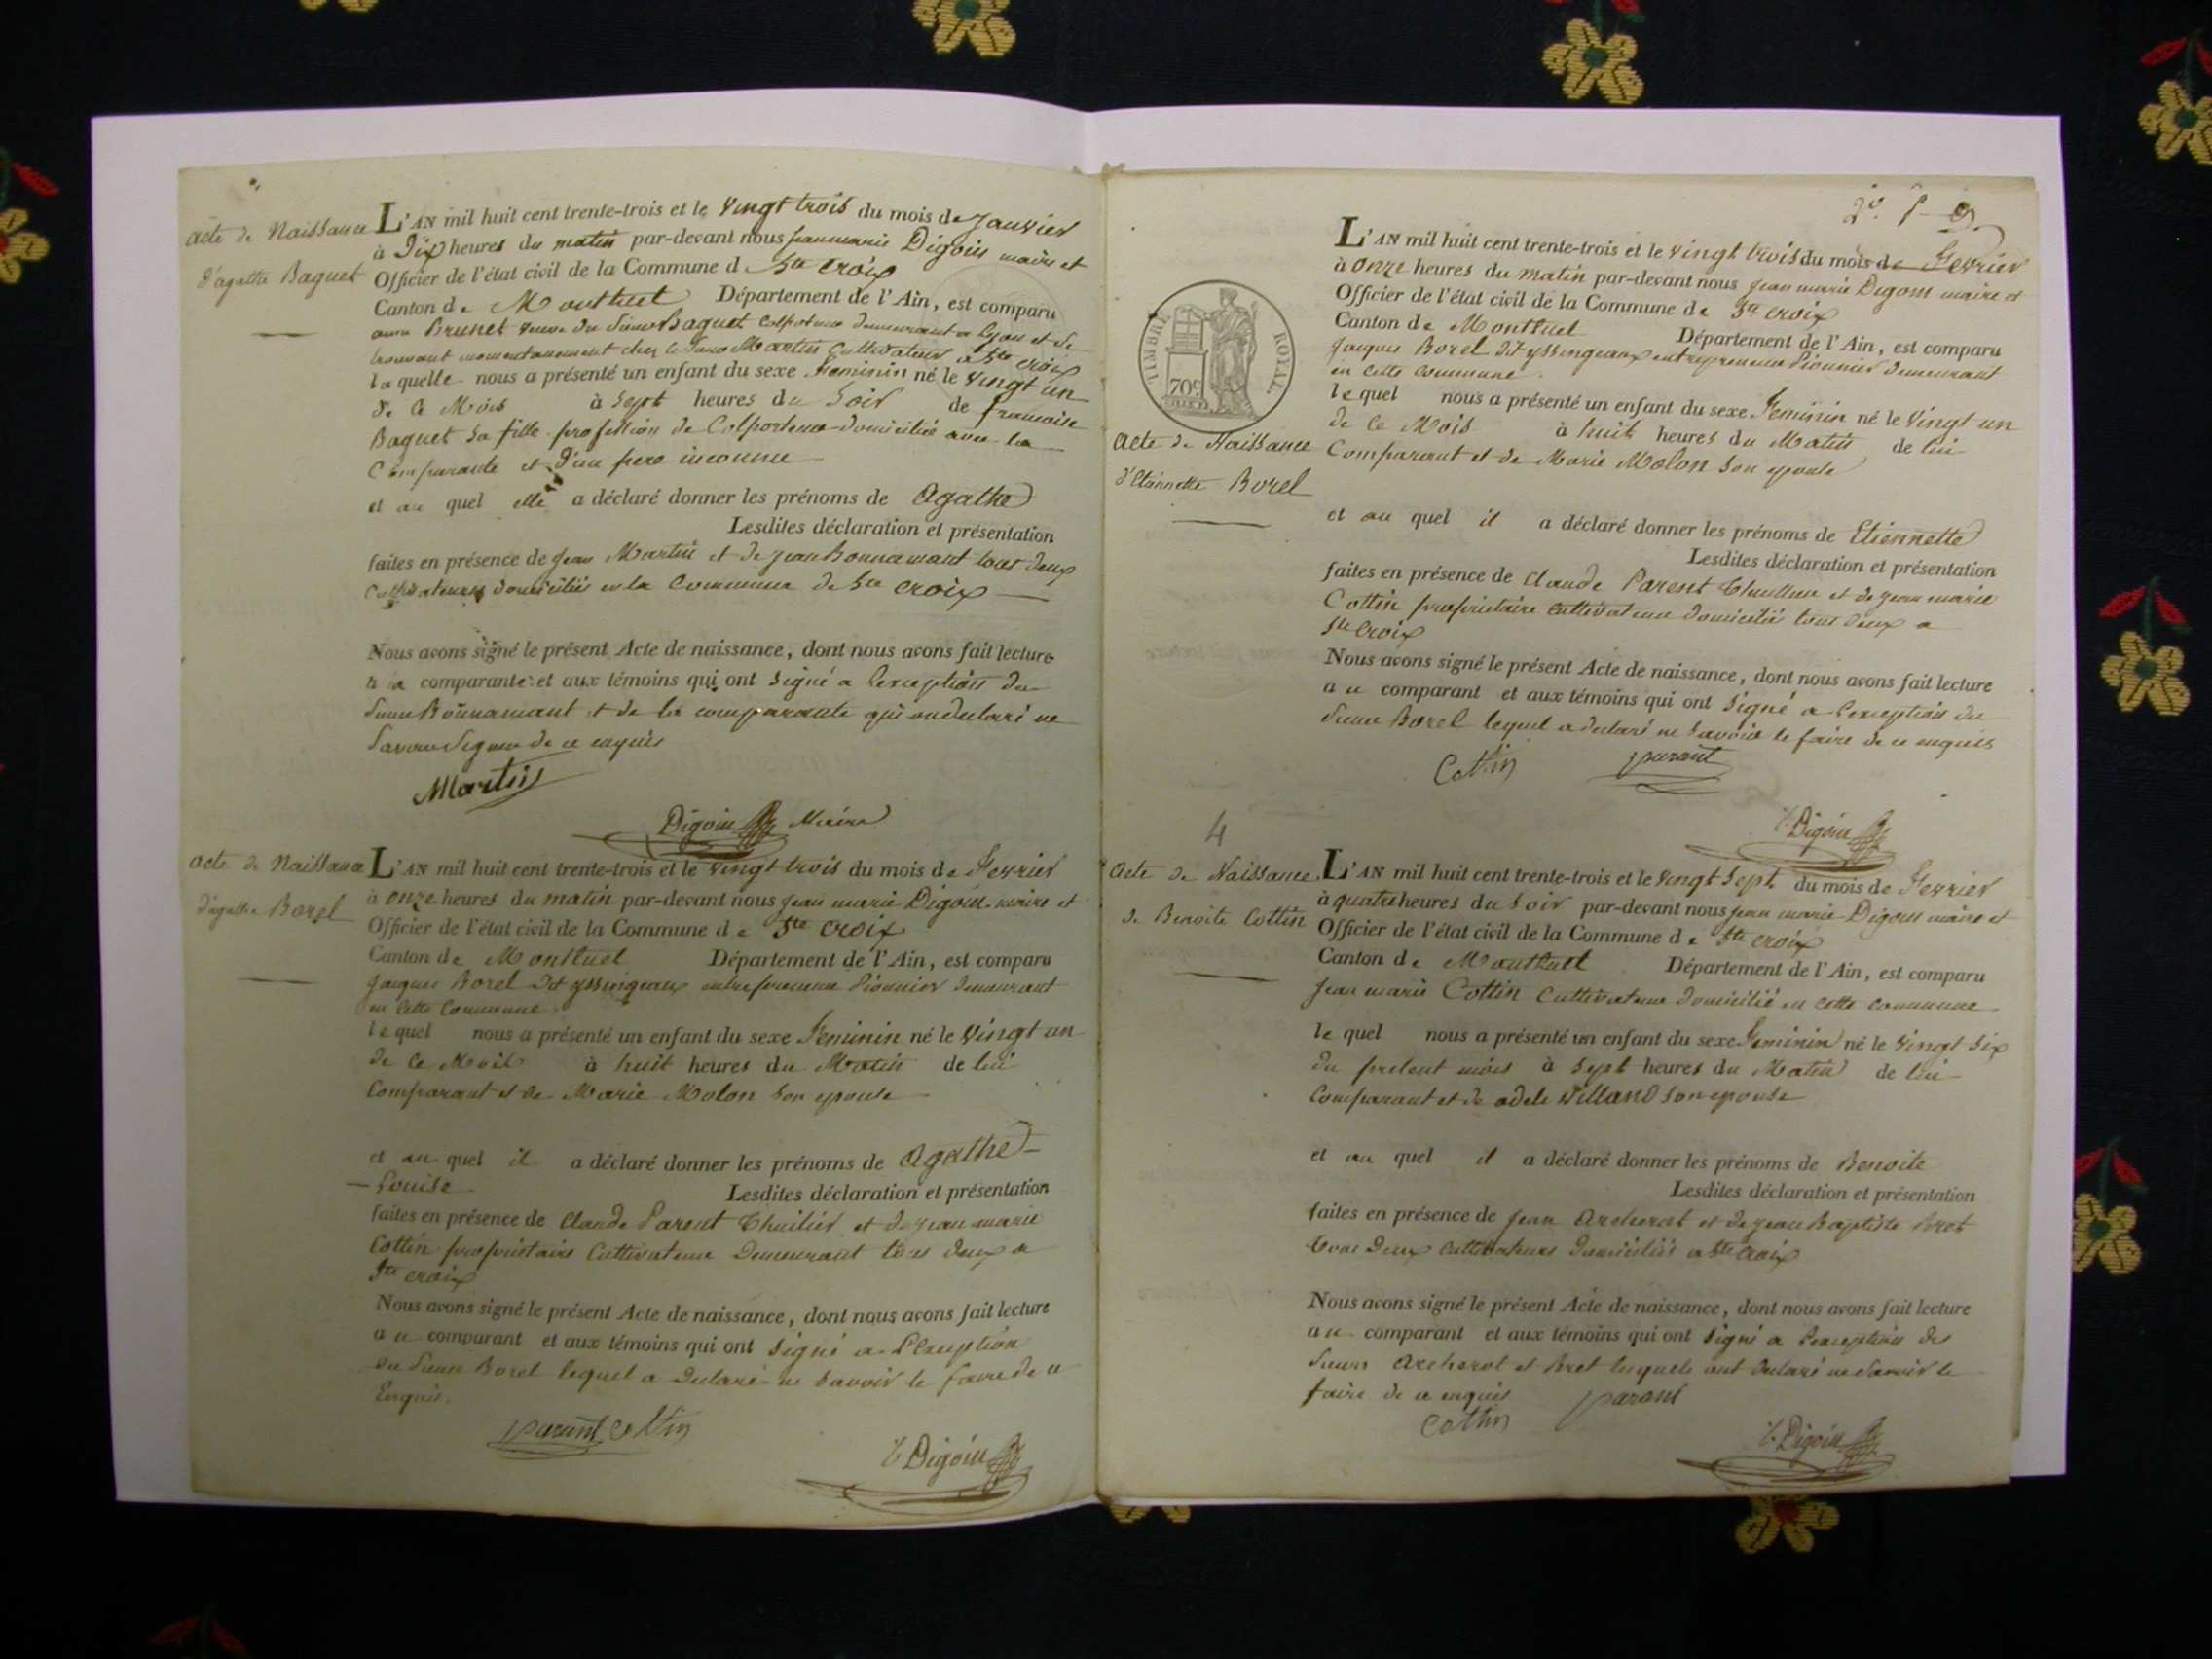 acte de Naissance
d'agathe Baguet
L'AN mil huit cent trente-trois et le vingt trois du mois de Janvier
à Dix heures du matin par-devant nous jean marie Digoin maire et
Officier de l'état civil de la Commune de Ste Croix
Canton de Montluel Département de l'Ain, est comparu
Brunet veuve du Sieur Baguet Colporteur demeurant a Lyon et se
trouvant momentanement chez le Sieur Martin Cultivateur a Ste croix
laquelle nous a présenté un enfant du sexe Feminin né le vingt un
de ce Mois à Sept heures du Soir de francoise
Baguet sa fille profession de Colporteur domiciliée avec la
Comparante et d'un pere inconnu
et au quel elle a déclaré donner les prénoms de Agathe
Lesdites déclaration et présentation
faites en présence de jean Martin et de jean Bonnamant tout deux
Cultivateurs domiciliés en la Commune de Ste Croix
Nous avons signé le présent Acte de naissance, dont nous avons fait lecture
a la comparante et aux témoins qui ont signé a l'exception du
Sieur Bonnamant et de la comparante qui ont declaré ne
Savoir Signer de ce enquis
Martin
Digoin Maire
acte de Naissance
d'agathe Borel
L'AN mil huit cent trente-trois et le vingt trois du mois de Fevrier
à onze heures du matin par-devant nous jean marie Digoin maire et
Officier de l'état civil de la Commune de Ste Croix
Canton de Montluel Département de l'Ain, est comparu
jacques Borel dit yssingeaux entrepreneur Pionnier demeurant
en Cette Commune
le quel nous a présenté un enfant du sexe Feminin né le vingt un
de ce Mois à huit heures du Matin de lui
Comparant et de Marie Molon son epouse
et au quel il a déclaré donner les prénoms de Agathe
Louise Lesdites déclaration et présentation
faites en présence de Claude Parent Thuilier et de jean marie
Cottin proprietaire Cultivateur Demeurant tous deux a
Ste croix
Nous avons signé le présent Acte de naissance, dont nous avons fait lecture
au comparant et aux témoins qui ont signé a l'Exception
du Sieur Borel lequel a declaré ne savoir le faire de ce
Enquis.
parant Cottin
Digoin
2e.
TIMBRE ROYAL
70c
acte de Naissance
d'Etiennette Borel
L'AN mil huit cent trente-trois et le vingt trois du mois de Fevrier
à onze heures du matin par-devant nous jean marie Digoin maire et
Officier de l'état civil de la Commune de Ste Croix
Canton de Montluel Département de l'Ain, est comparu
jacques Borel dit yssingeaux entrepreneur Pionnier demeurant
en cette commune
le quel nous a présenté un enfant du sexe Feminin né le vingt un
de ce Mois à huit heures du Matin de lui
Comparant et de Marie Molon son epouse
et au quel il a déclaré donner les prénoms de Etiennette
Lesdites déclaration et présentation
faites en présence de claude Parent Thuillier et de jean marie
Cottin proprietaire Cultivateur domiciliés tous deux a
Ste Croix
Nous avons signé le présent Acte de naissance, dont nous avons fait lecture
au comparant et aux témoins qui ont signé a l'exception du
Sieur Borel lequel a declaré ne savoir le faire de ce enquis
Cottin parant
Digoin
4
acte de Naissance
de Benoite Cottin
L'AN mil huit cent trente-trois et le vingt Sept du mois de Fevrier
à quatre heures du soir par-devant nous jean marie Digoin maire et
Officier de l'état civil de la Commune de Ste croix
Canton de Montluel Département de l'Ain, est comparu
Jean marie Cottin Cultivateur domicilié en cette commune
le quel nous a présenté un enfant du sexe Feminin né le vingt six
du present mois à Sept heures du Matin de lui
Comparant et de adele Willand son epouse
et au quel il a déclaré donner les prénoms de Benoite
Lesdites déclaration et présentation
faites en présence de jean Archerot et de jean Baptiste Bret
tous Deux Cultivateurs Domiciliés a Ste Croix
Nous avons signé le présent Acte de naissance, dont nous avons fait lecture
au comparant et aux témoins qui ont signé a l'exception des
Sieurs Archerot et Bret lesquels ont declaré ne Savoir le
faire de ce enquis
Cottin parant
Digoin